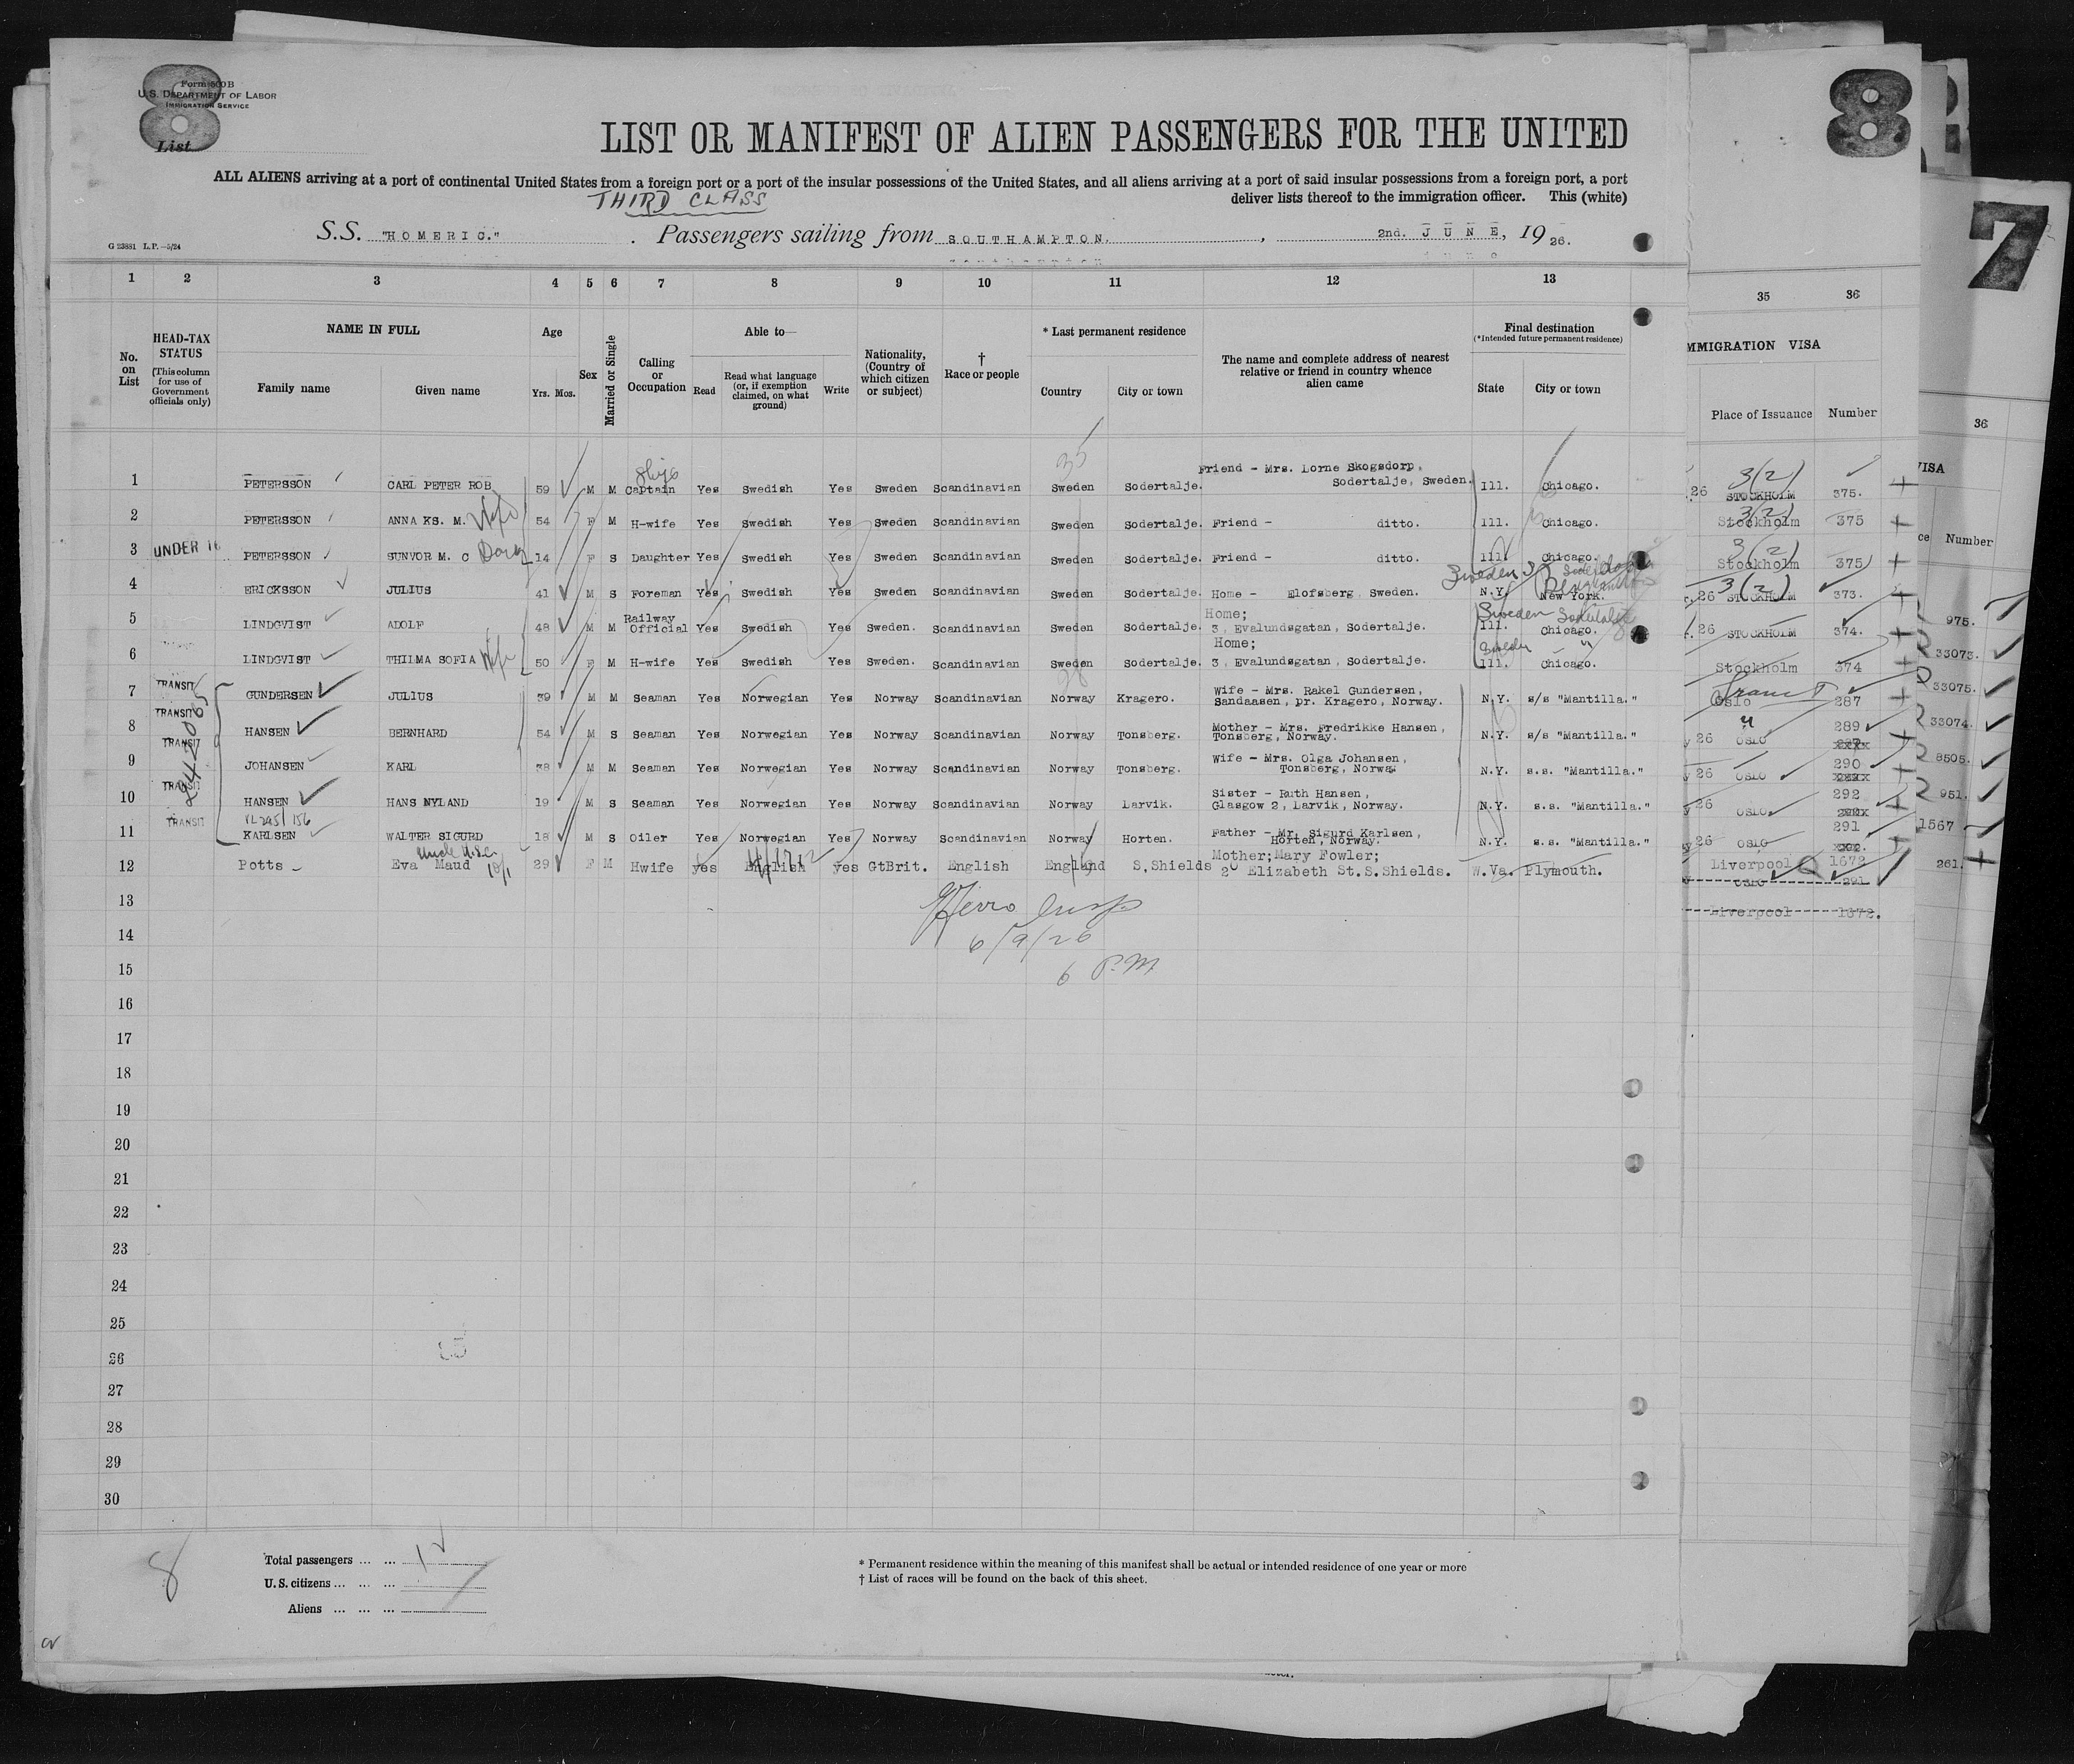 8
Form 500 B
U.S. DEPARTMENT OF LABOR
IMMIGRATION SERVICE
List
8
7
LIST OR MANIFEST OF ALIEN PASSENGERS FOR THE UNITED
ALL ALIENS arriving at a port of continental United States from a foreign port or a port of the insular possessions of the United States, and all aliens arriving at a port of said insular possessions from a foreign port, a port
deliver lists thereof to the immigration officer. This (white)
THIRD CLASS
S.S. "HOMERIC." Passengers sailing from SOUTHAMPTON, 2nd. JUNE, 1926.
G 23881 L.P.—5/24
1 2 3 4 5 6 7 8 9 10 11 12 13 35 36
No. on List
HEAD-TAX STATUS (This column for use of Government officials only)
NAME IN FULL
Family name Given name
Age
Yrs. Mos.
Sex
Married or Single
Calling or Occupation
Able to—
Read Read what language (or, if exemption claimed, on what ground) Write
Nationality, (Country of which citizen or subject)
† Race or people
* Last permanent residence
Country City or town
The name and complete address of nearest relative or friend in country whence alien came
Final destination
(*Intended future permanent residence)
State City or town
MMIGRATION VISA
Place of Issuance Number
36
VISA
ce Number
1 PETERSSON CARL PETER ROB 59 M M Ships Captain Yes Swedish Yes Sweden Scandinavian Sweden Sodertalje. Friend - Mrs. Lorne Skogsdorp, Sodertalje, Sweden. Ill. Chicago. 26 3(2) STOCKHOLM 375.
2 PETERSSON ANNA KS. M. Wife 54 F M H-wife Yes Swedish Yes Sweden Scandinavian Sweden Sodertalje. Friend - ditto. Ill. Chicago. 3(2) Stockholm 375
3 UNDER 16 PETERSSON SUNVOR M. C 14 F S Daughter Yes Swedish Yes Sweden Scandinavian Sweden Sodertalje. Friend - ditto. Ill. Chicago. 3(2) Stockholm 375
4 ERICKSSON JULIUS 41 M S Foreman Yes Swedish Yes Sweden Scandinavian Sweden Sodertalje. Home - Elofsberg, Sweden. Sweden N.Y. New York. 26 3(2) STOCKHOLM 373.
5 LINDGVIST ADOLF 48 M M Railway Official Yes Swedish Yes Sweden. Scandinavian Sweden Sodertalje. Home; 3, Evalundsgatan, Sodertalje. Sweden Sodertalje Ill. Chicago. 26 STOCKHOLM 374.
6 LINDGVIST THILMA SOFIA Wife 50 F M H-wife Yes Swedish Yes Sweden. Scandinavian Sweden Sodertalje. Home; 3, Evalundsgatan, Sodertalje. Sweden " Ill. Chicago. Stockholm 374
7 TRANSIT GUNDERSEN JULIUS 39 M M Seaman Yes Norwegian Yes Norway Scandinavian Norway Kragero. Wife - Mrs. Rakel Gundersen, Sandaasen, pr. Kragero, Norway. N.Y. s/s "Mantilla." Transit Oslo 287
8 TRANSIT HANSEN BERNHARD 54 M S Seaman Yes Norwegian Yes Norway Scandinavian Norway Tonsberg. Mother - Mrs. Fredrikke Hansen, Tonsberg, Norway. N.Y. s/s "Mantilla." 26 " OSLO 289
9 TRANSIT JOHANSEN KARL 38 M M Seaman Yes Norwegian Yes Norway Scandinavian Norway Tonsberg. Wife - Mrs. Olga Johansen, Tonsberg, Norway N.Y. s.s. "Mantilla." 26 OSLO 290
10 TRANSIT HANSEN HANS NYLAND 19 M S Seaman Yes Norwegian Yes Norway Scandinavian Norway Larvik. Sister - Ruth Hansen, Glasgow 2, Larvik, Norway. N.Y. s.s. "Mantilla." 26 OSLO. 292
11 TRANSIT KARLSEN WALTER SIGURD 18 M S Oiler Yes Norwegian Yes Norway Scandinavian Norway Horten. Father - Mr. Sigurd Karlsen, Horten, Norway. N.Y. s.s. "Mantilla." 26 OSLO 291
12 Potts Eva Maud 29 F M Hwife yes English yes GtBrit. English England S.Shields Mother; Mary Fowler; 20 Elizabeth St. S.Shields. W.Va. Plymouth. Liverpool 1672
OSLO 291
Liverpool 1672.
975.
33073.
33075.
33074.
8505.
951.
1567
261.
13
6/9/26
14
6 P.M
15
16
17
18
19
20
21
22
23
24
25
26
27
28
29
30
8
Total passengers ... ... 12
U.S. citizens ... ... ...
Aliens ... ... ...
* Permanent residence within the meaning of this manifest shall be actual or intended residence of one year or more
† List of races will be found on the back of this sheet.